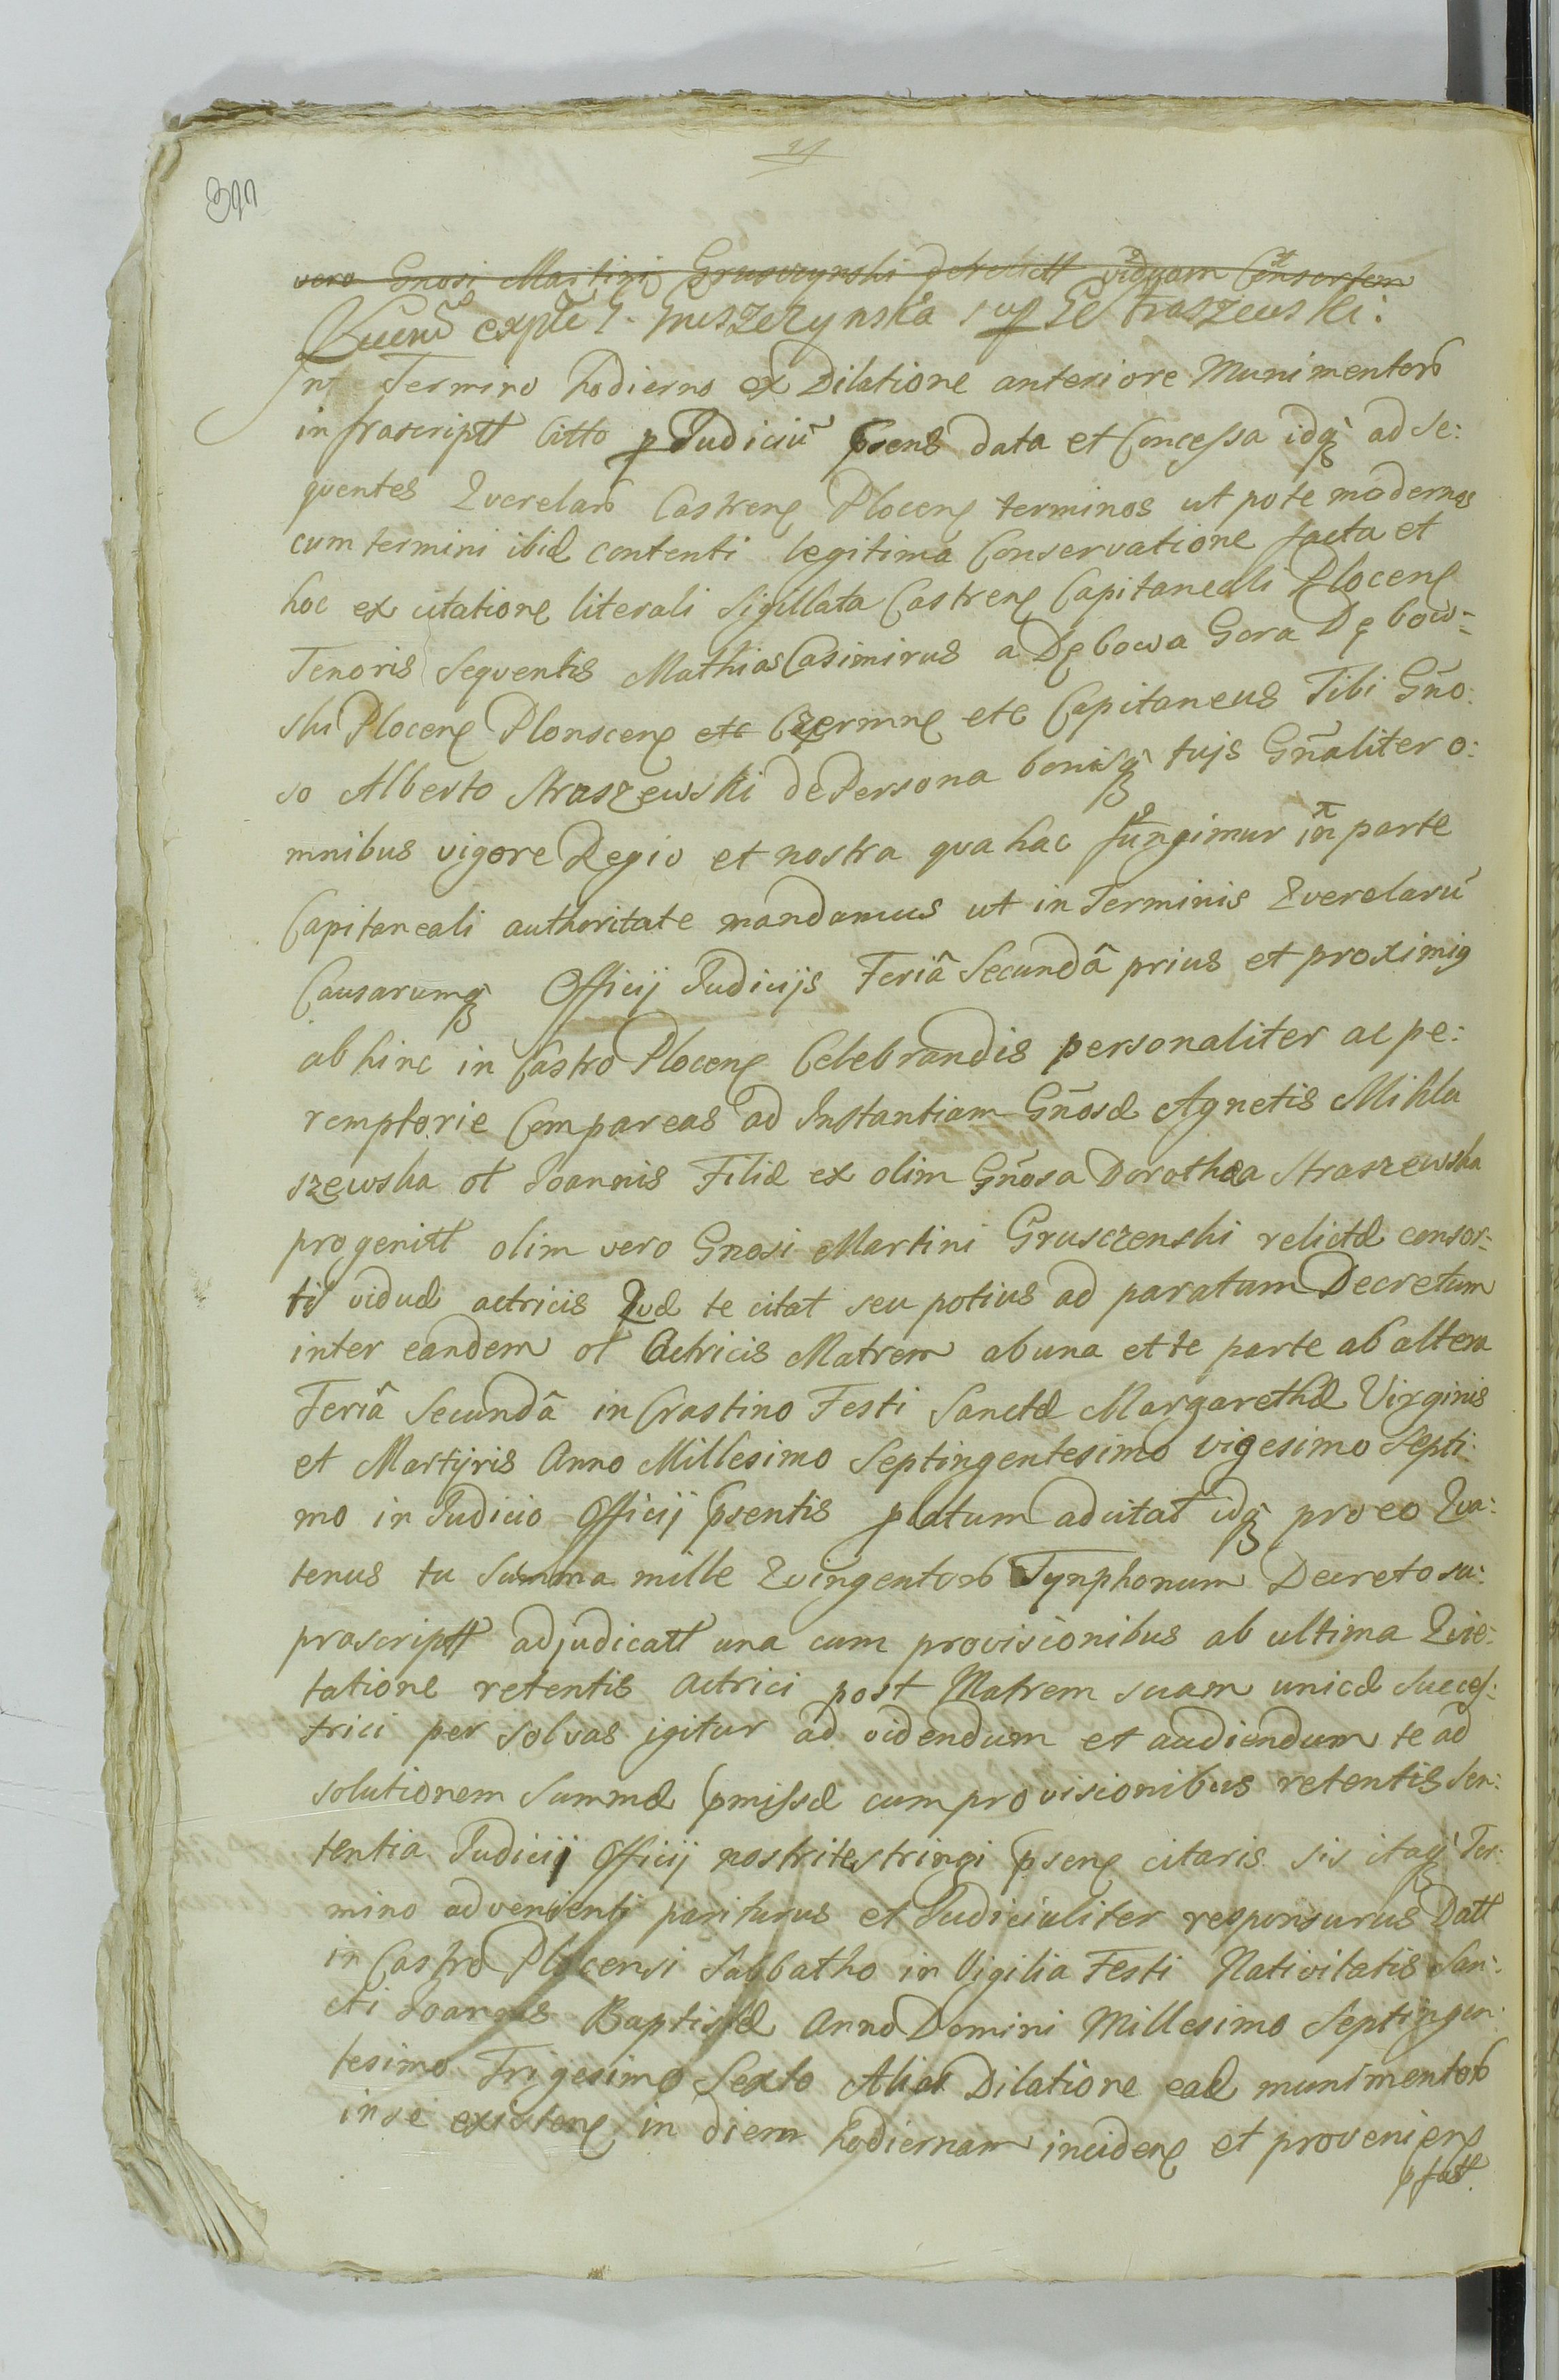 vero Gnosi Martini Grusczynski derelictt viduam Consortem
expte G. Gruszczynska sup Ge Straszewski:
In Termino hodierno ex Dilatione anteriore Munimentorb
infrascriptt Citto p Judiciũ psens data et Concessa idq̃ ad se:
quentes Querelarb Castren Plocen terminos ut pote modernos
cum termini ibid contenti legitima Conservatione facta et
hoc ex citatione literali Sigillata Castren Capitaneali Plocen
Tenoris Sequentis Mathias Casimirus a Dębowa Gora Dębow-
ski Plocen Plonscen etc Czermn etc Capitaneus Tibi Gño:
so Alberto Straszewski de Persona bonisq̃ tujs Gñaliter o:
mnibus vigore Regio et nostra qua hac fungimur in parte
Capitaneali authoritate mandamus ut in Terminis Querelarũ
Causarumq̃ Officij Judicijs Feriâ Secundâ prius et proximis
ab hinc in Castro Plocen Celebrandis personaliter ac pe:
remptorie Compareas ad Instantiam Gñosæ Agnetis Mikla
szewska ol Joannis Filiæ ex olim Gñosa Dorothea Straszewska
progenitt olim vero Gnosi Martini Grusczenski relictæ consor:
tis viduæ actricis Quæ te citat seu potius ad paratam Decretum
inter eandem ol Actricis Matrem ab una et te parte ab altera
Feriâ Secundâ in Crastino Festi Sanctæ Margarethæ Virginis
et Martyris Anno Millesimo Septingentesimo vigesimo Septi:
mo in Judicio Officij psentis platum adcitat idq̃ pro eo Qua:
tenus tu Summa mille Quingentorb Tynphonum Decreto su:
prascriptt adjudicatt una cum provisionibus ab ultima Quie:
tatione retentis Actrici post Matrem suam unicæ Succes:
trici per solvas igitur ad videndum et audiendum te ad
solutionem Summæ pmissæ cum provisionibus retentis Sen:
tentia Judicij Officij nostri te stringi psen citaris sis itaq̃ Ter:
mino advenienti pariturus et Judicialiter responsurus Datt
in Castro Plocensi Sabbatho in Vigilia Festi Nativitatis San:
cti Joannis Baptistæ Anno Domini Millesimo Septingen:
tesimo Trigesimo Sexto Alias Dilatione ead munimentorb
in se existen in diem hodiernam inciden et provenien
pfatt.